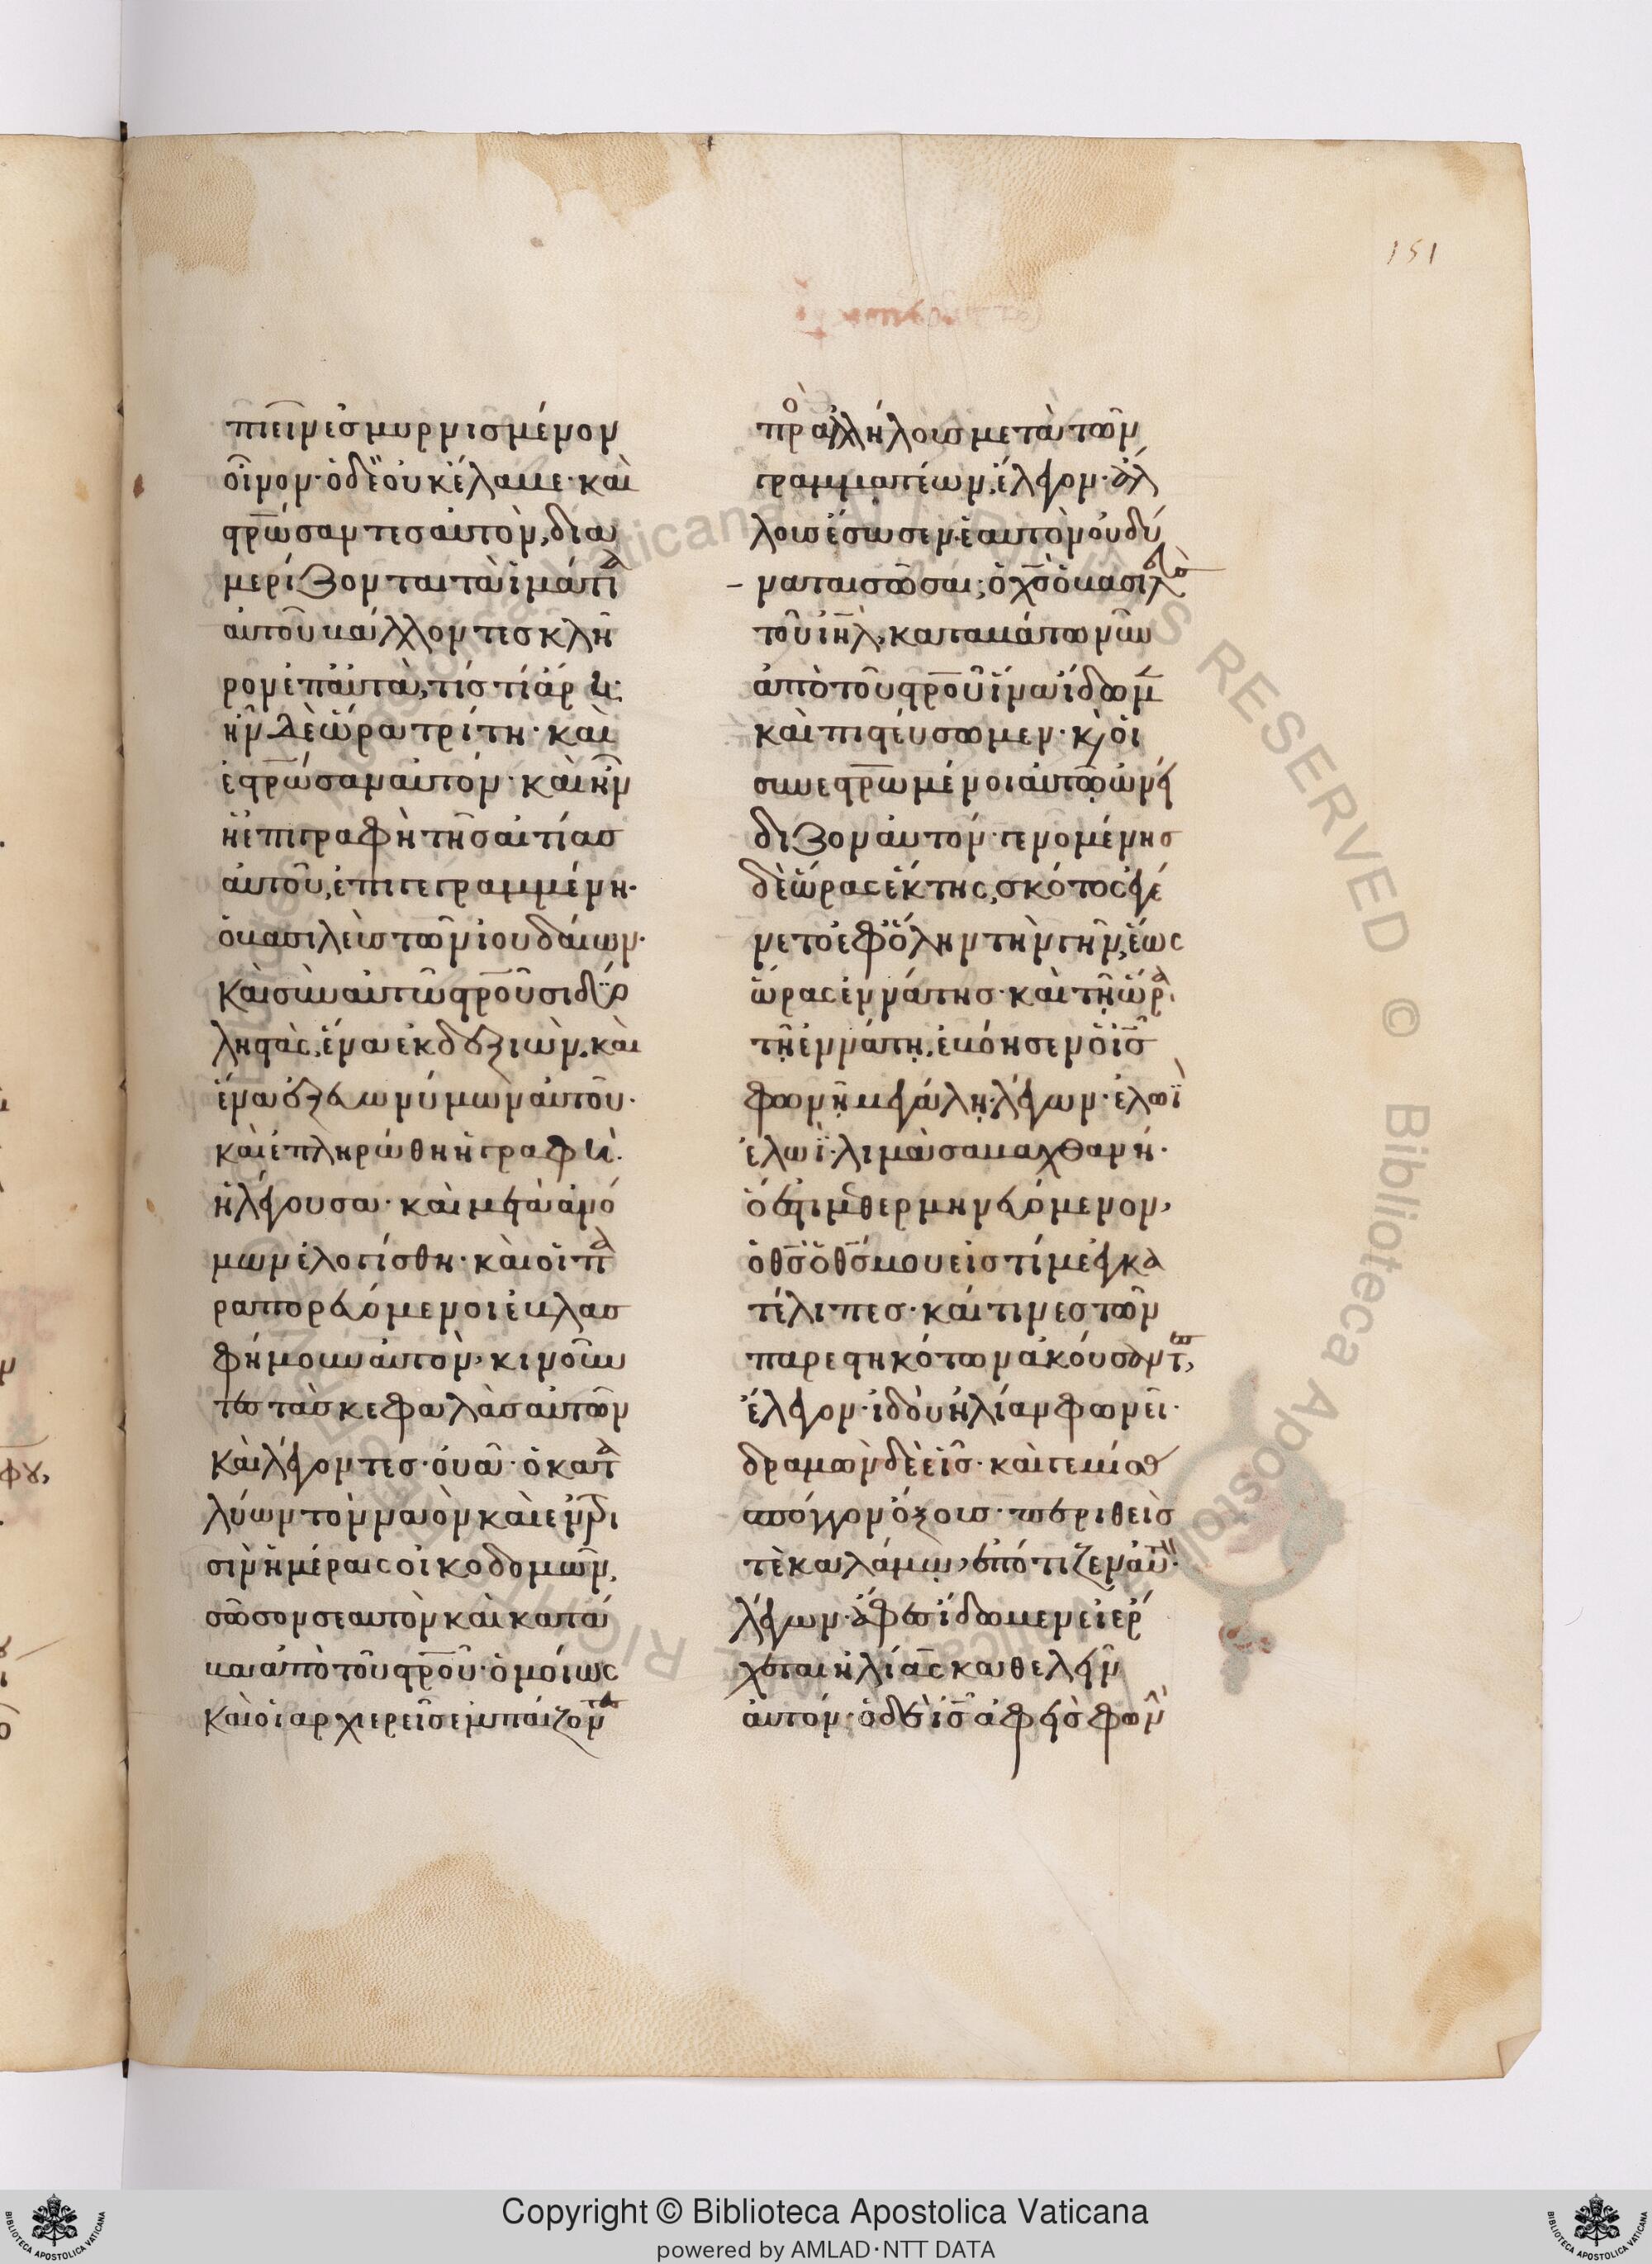 151
πιεῖν ἐσμυρνισμένον
οἶνον· ὁ δὲ οὐκ ἔλαβε· καὶ
στρ̅ώσαντες αὐτὸν, δια
μερίζονται τὰ ἱμάτια
αὐτοῦ βάλλοντες κλῆ
ρον ἐπ' αὐτὰ, τίς τί ἄρῃ·
ἦν δὲ ὥρα τρίτη· καὶ
ἐστρ̅ώσαν αὐτόν· καὶ ἦν
ἡ ἐπιγραφὴ τῆς αἰτίας
αὐτοῦ, ἐπιγεγραμμένη·
ὁ βασιλεὺς τῶν ἰουδαίων·
καὶ σὺν αὐτῶ στρ̅οῦσι δύο
ληστὰς, ἕνα ἐκ δεξιῶν, καὶ
ἕνα ἐξ εὐωνύμων αὐτοῦ·
καὶ ἐπληρώθη ἡ γραφὴ
ἡ λέγουσα· καὶ μετὰ ἀνό
μων ἐλογίσθη· καὶ οἱ πα
ραπορευόμενοι ἐβλασ
φήμουν αὐτὸν, κινοῦν
τες τὰς κεφαλὰς αὐτῶν
καὶ λέγοντες· οὐᾶ· ὁ κατα
λύων τὸν ναὸν καὶ ἐν τρι
σὶν ἡμέραις οἰκοδομῶν,
σῶσον σεαυτὸν καὶ κατά
βα ἀπὸ τοῦ στρ̅οῦ· ὁμοίως
καὶ οἱ ἀρχιερεῖς ἐμπαίζοντες
πρὸ ἀλλήλους μετὰ τῶν
γραμματέων, ἔλεγον· ἄλ
λους ἔσωσεν, ἑαυτὸν οὐ δύ
ναται σῶσαι; ὁ χ̅ς ὁ βασιλεὺς
τοῦ ἰ̅η̅λ, καταβάτω νῦν
ἀπὸ τοῦ στρ̅οῦ ἵνα ἴδωμεν
καὶ πιστεύσωμεν· κ̀ οἱ
συνεστρ̅ωμένοι αὐτῶ, ὠνεί
διζον αὐτόν· γενομένης
δὲ ὥρας ἕκτης, σκότος ἐγέ
νετο ἐφ' ὅλην τὴν γῆν, ἕως
ὥρας ἐννάτης· καὶ τῇ ὥρᾳ
τῇ ἐννάτῃ, ἐβόησεν ὁ ἰ̅ς
φωνῇ μεγάλῃ, λέγων· ἐλωῒ
ἐλωῒ· λιμὰ σαβαχθανή·
ὅ ἐστι μεθερμηνευόμενον,
ὁ θ̅ς ὁ θ̅ς μου εἰς τί με ἐγκα
τέλιπες· καί τινες τῶν
παρεστηκότων ἀκούσαντες,
ἔλεγον· ἰδοὺ ἠλίαν φωνεῖ·
δραμὼν δὲ εἷς· καὶ γεμίσας
σπόγγον ὄξους· περιθεὶς
τὲ καλάμῳ, ἐπότιζεν αὐτὸν·
λέγων· ἄφετε ἴδωμεν εἰ ἔρ
χεται ἠλίας καθελεῖν
αὐτόν· ὁ δὲ ἰ̅ς ἀφεὶς φων
Copyright © Biblioteca Apostolica Vaticana
powered by AMLAD·NTT DATA